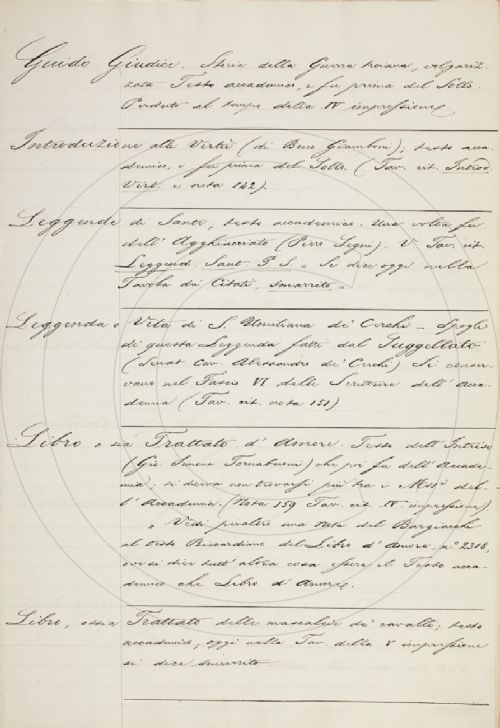 Guido Giudice. Storia della Guerra troiana, volgariz-
zata Testo accademico, e fu prima del Sollo.
Perduto al tempo della IV impressione.
Introduzione alle Virtù (di Bono Giamboni); testo acca-
demico, e fu prima del Sollo (Tav. cit. Introd.
Virt. e nota 142).
Leggende di Santi; testo accademico. Una volta fu
dell' Agghiacciato (Piero Segni). V. Tav. cit.
Leggend. Sant. P. S. = Si dice oggi nella
Tavola dei Citati, smarrito =
Leggenda o Vita di S. Umiliana de' Cerchi - Spogli
di questa Leggenda fatti dal Suggellato
(Senat. Cav. Alessandro de' Cerchi) Si conser-
vano nel Fascio VI delle Scritture dell' Acca-
demia (Tav. cit. nota 151)
Libro o sia Trattato d' Amore. Testo dell' Intriso
(Gio. Simone Tornabuoni) che poi fu dell' Accade-
mia; si diceva non trovarsi più tra i Mss. del-
l' Accademia. (Nota 159 Tav. cit. IV. impressione)
Vedi peraltro una nota del Bargiacchi
al testo Riccardiano del Libro d' Amore, n.° 2318,
ove si dice tutt' altra cosa essere il Testo acca-
demico che Libro d' Amore.
Libro, ossia Trattato delle mascalcie dei cavalli; testo
accademico, oggi nella Tav. della V impressione
si dice smarrito.